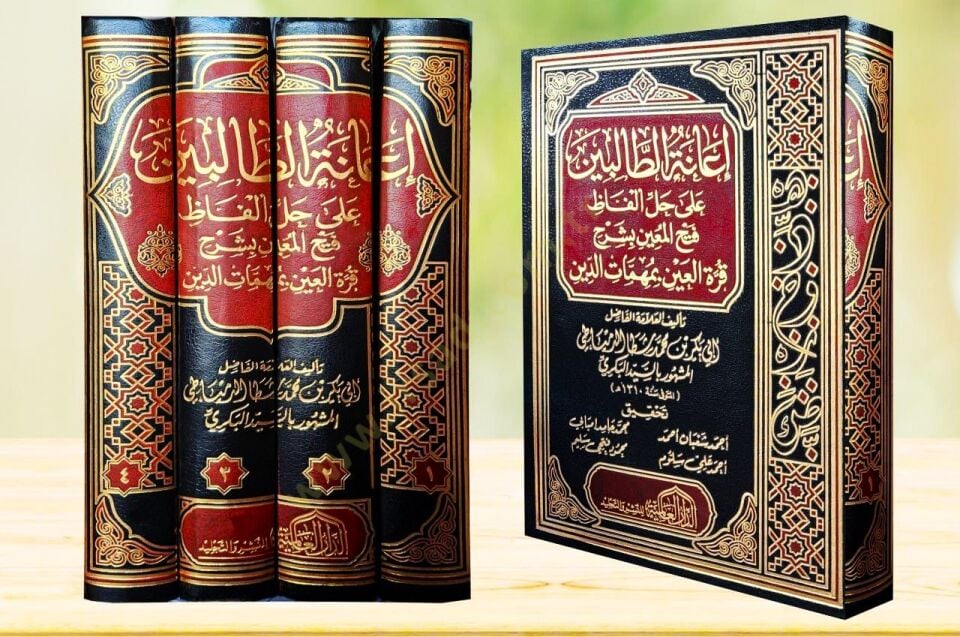 إعانة الطالبين
على حل ألفاظ
فتح المعين بشرح
قرة العين بمهمات الدين
تأليف العلامة الفاضل
أبي بكر بن محمد شطا الدمياطي
المشهور بالسيد البكري
١ ٢ ٣ ٤
الدار العالمية
للنشر والتجليد
إعانة الطالبين
على حل ألفاظ
فتح المعين بشرح
قرة العين بمهمات الدين
تأليف العلامة الفاضل
أبي بكر بن محمد شطا الدمياطي
المشهور بالسيد البكري
(المتوفى سنة ١٣١٠هـ)
تحقيق
أحمد شعبان أحمد محمد
أحمد علي محمود سليم
الدار العالمية للنشر والتجليد
١